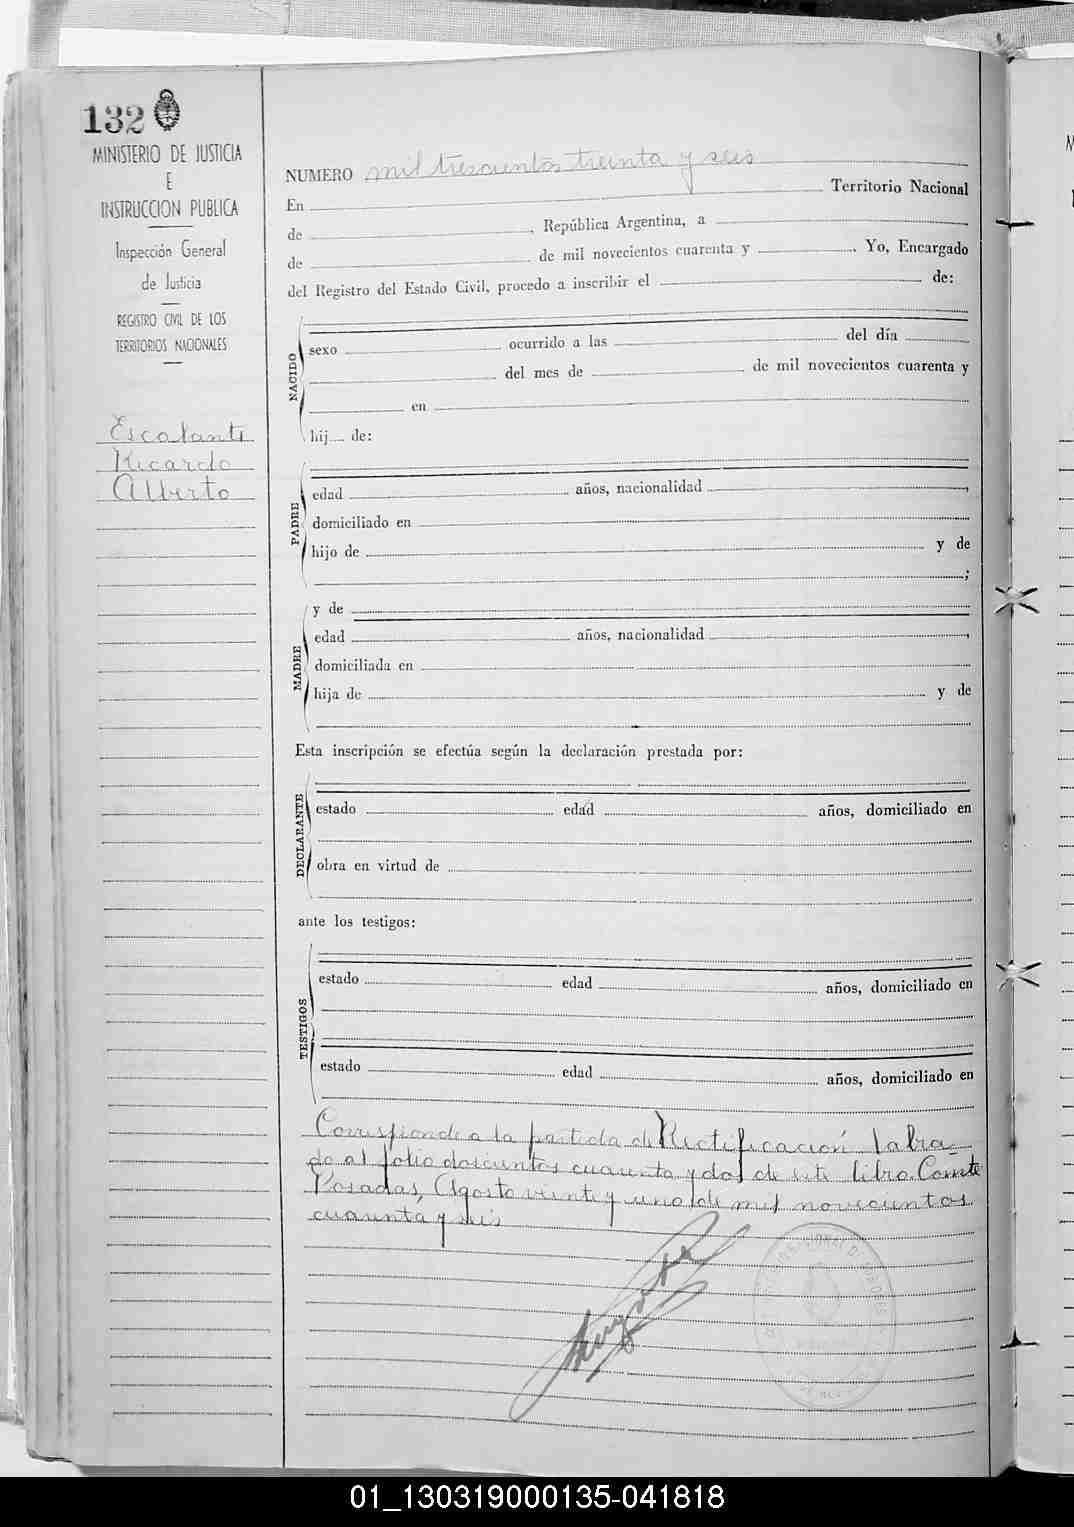 132
MINISTERIO DE JUSTICIA
E
INSTRUCCION PUBLICA
Inspección General
de Justicia
REGISTRO CIVIL DE LOS
TERRITORIOS NACIONALES
Escalante
Ricardo
Alberto
NUMERO mil trescientos treinta y seis
En Territorio Nacional
de , República Argentina, a
de de mil novecientos cuarenta y . Yo, Encargado
del Registro del Estado Civil, procedo a inscribir el de:
NACIDO
sexo ocurrido a las del día
del mes de de mil novecientos cuarenta y
en
hij de:
PADRE
edad años, nacionalidad ,
domiciliado en
hijo de y de
;
MADRE
y de
edad años, nacionalidad ,
domiciliada en
hija de y de
Esta inscripción se efectúa según la declaración prestada por:
DECLARANTE
estado edad años, domiciliado en
obra en virtud de
ante los testigos:
TESTIGOS
estado edad años, domiciliado en
estado edad años, domiciliado en
Corresponde a la partida de Rectificación labra-
da al folio doscientos cuarenta y dos de este libro. Conste
Posadas, Agosto veinte y uno de mil novecientos
cuarenta y seis
01_130319000135-041818